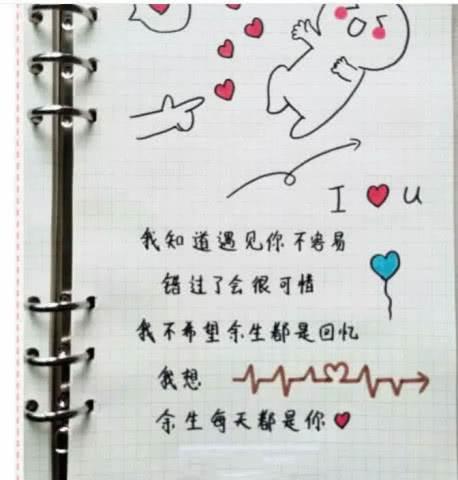 I ❤ U
我知道遇见你不容易
错过了会很可惜
我不希望余生都是回忆
我想
余生每天都是你❤